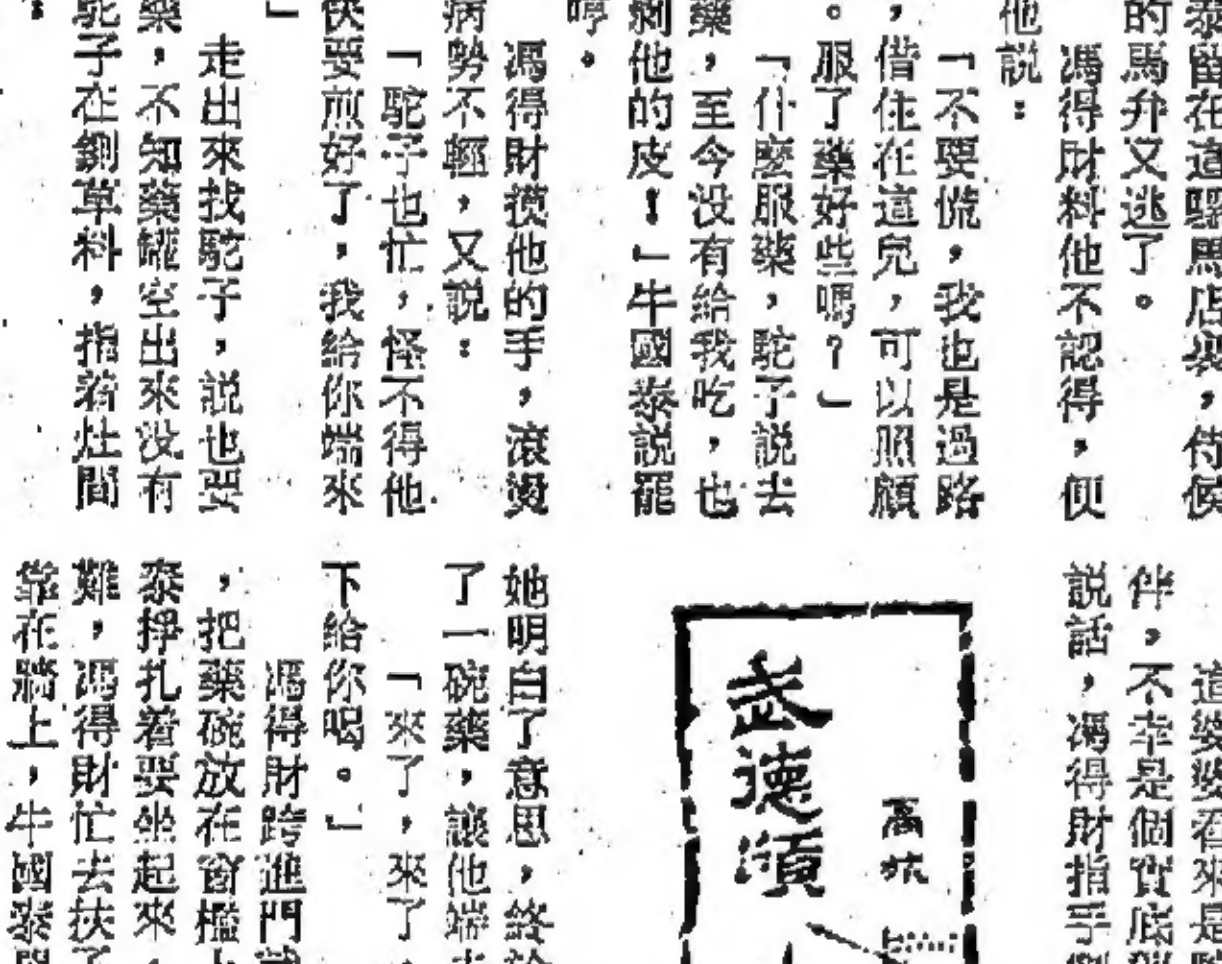 泰留在這騾馬店裏,侍候
的馬弁又逃了。
馮得財料他不認得,便
他説:
「不要慌,我也是過路
,借住在這兒,可以照顧
。服了藥好些嗎?」
「什麽服藥,駝子説去
藥,至今没有給我吃,也
剝他的皮!」牛國泰説罷
哼。
馮得財摸他的手,滾燙
病勢不輕,又説:
「駝子也忙,怪不得他
快要煎好了,我給你端來
」
走出來找駝子,説也要
藥,不知藥罐空出來没有
駝子在鍘草料,指着灶間
:
這婆婆看來是
伴,不幸是個實底
説話,馮得財指手
武德順
高
她明白了意思,終於
了一碗藥,讓他端
下給你喝。」
「來了,來了,
馮得財跨進門
,把藥碗放在窗檻
泰掙扎着要坐起來,
難,馮得財忙去扶了
靠在牆上,牛國泰